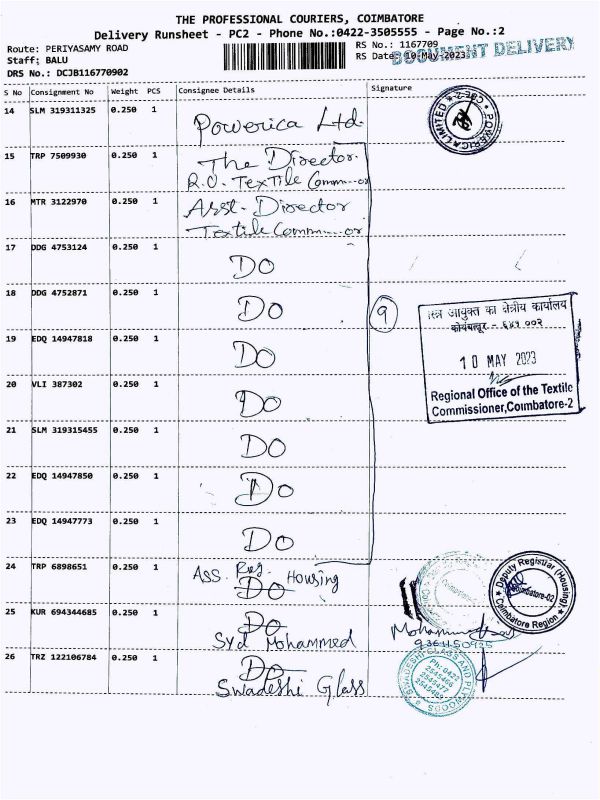 THE PROFESSIONAL COURIERS, COIMBATORE
Delivery Runsheet - PC2 - Phone No.:0422-3505555 - Page No.:2
Route: PERIYASAMY ROAD
RS No.: 1167709
DOCUMENT DELIVERY
Staff: BALU
RS Date: 10-May-2023
DRS No.: DCJB116770902
S No Consignment No Weight PCS Consignee Details Signature
14 SLM 319311325 0.250 1 Powerica Ltd.
POWERICA LIMITED CBE-2
15 TRP 7509930 0.250 1 The Director
R.O. Textile Comm---or
16 MTR 3122970 0.250 1 Asst. Director
Textile Comm---or
17 DDG 4753124 0.250 1 DO
18 DDG 4752871 0.250 1 DO
9
19 EDQ 14947818 0.250 1 DO
20 VLI 387302 0.250 1 DO
21 SLM 319315455 0.250 1 DO
22 EDQ 14947850 0.250 1 DO
23 EDQ 14947773 0.250 1 DO
आयुक्त का क्षेत्रीय कार्यालय
कोयंबत्तूर - ६४१ ००२
10 MAY 2023
Regional Office of the Textile
Commissioner, Coimbatore-2
24 TRP 6898651 0.250 1 Ass. Reg. Housing
DO
Deputy Registrar (Housing)
Coimbatore-02
Coimbatore Region
25 KUR 694344685 0.250 1 DO
Syd Mohammed
26 TRZ 122106784 0.250 1 DO
Swadeshi Glass
SWADESHI GLASS AND PLYWOODS
Ph: 0422
2545466
2545477